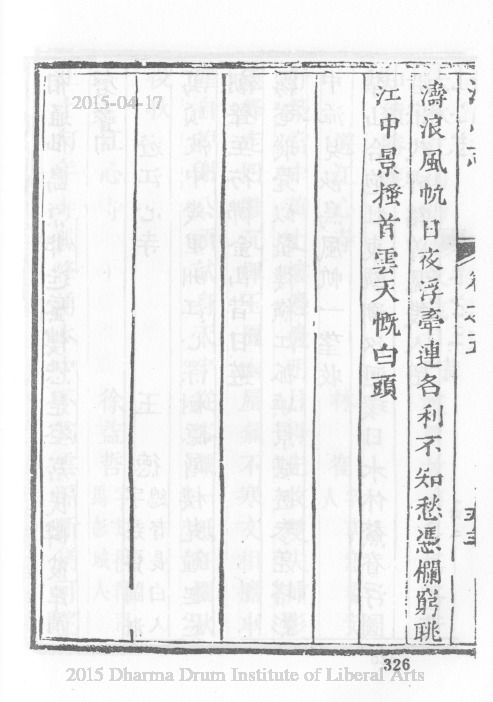 濤浪風帆日夜浮牽連各利不知愁憑欄窮眺
江中景搔首雲天慨白頭
2015-04-17
326
2015 Dharma Drum Institute of Liberal Arts